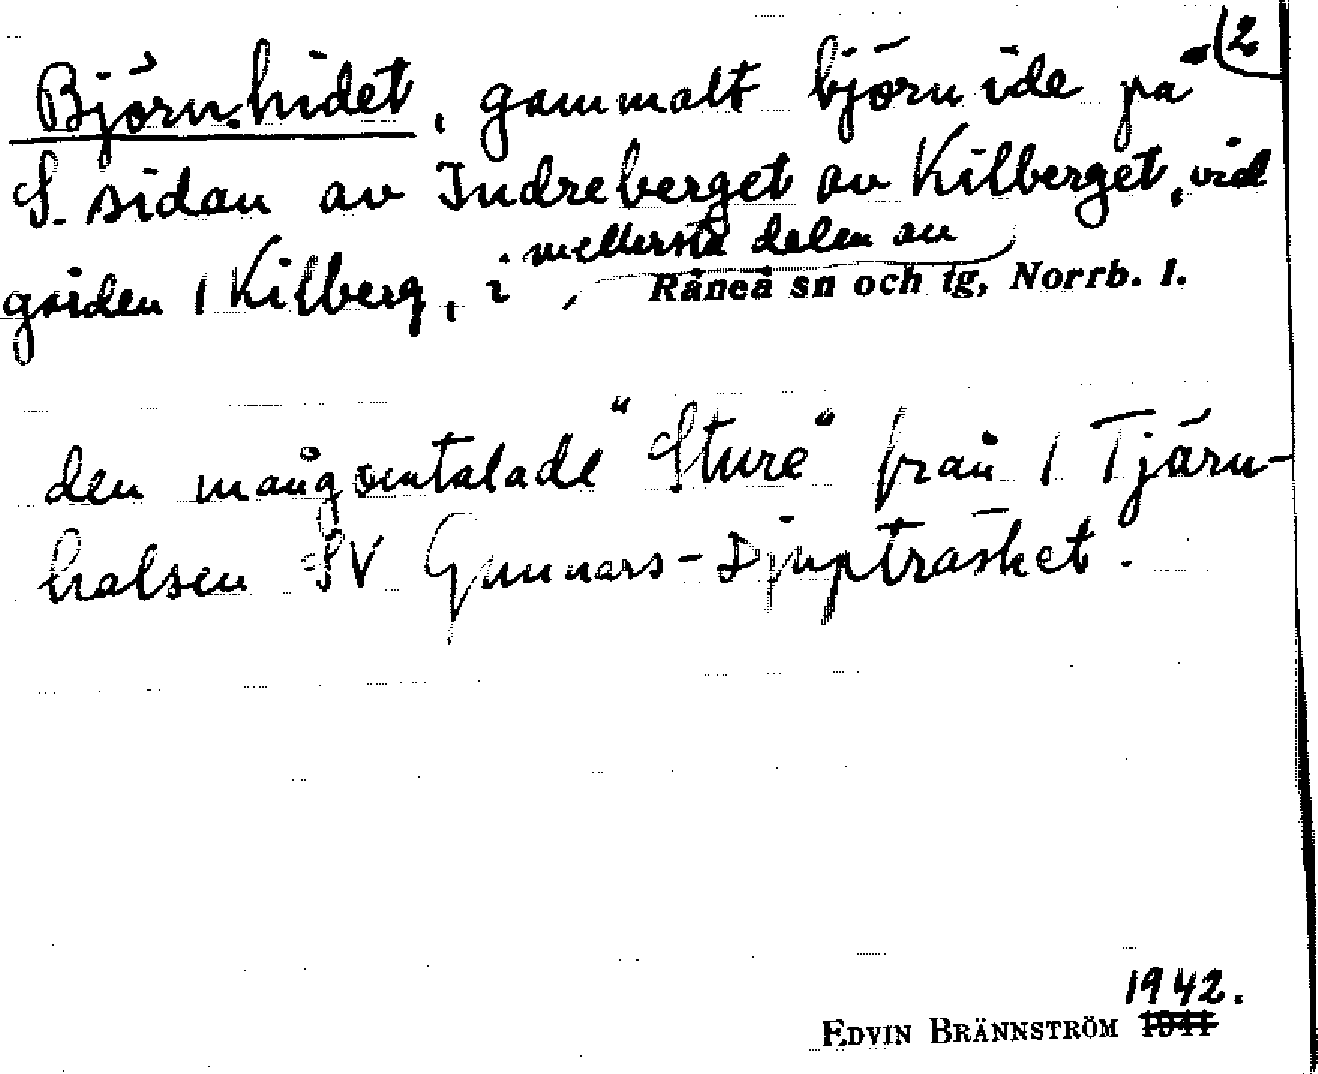 (2
Björn-hidet, gammalt björnide på
S. sidan av Indreberget av Kilberget, vid
gården 1 Kilberg, i mellersta delen av
Råneå sn och tg, Norrb. l.
den mångomtalade "Sture" från 1 Tjärn-
halsen SV Gunnars-Djupträsket.
1942.
EDVIN BRÄNNSTRÖM 1941